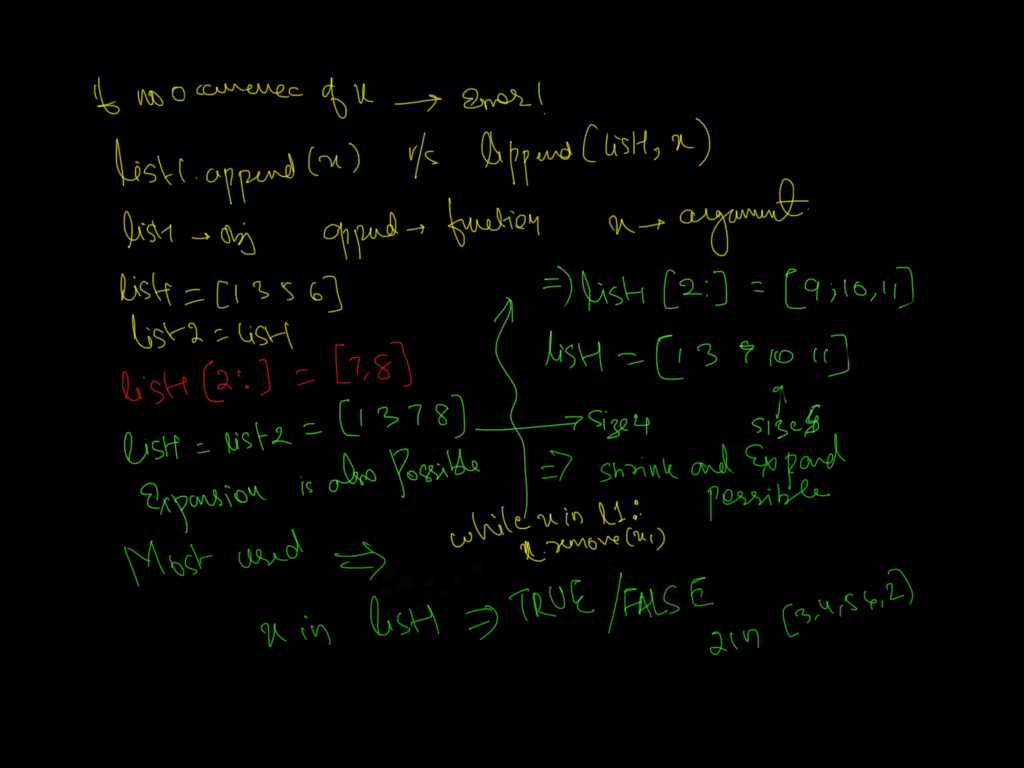 if no occurrence of x → Error!
list1.append(x) v/s append(list1, x)
list1 → obj append → function x → argument
list1 = [1 3 5 6]
list2 = list1
list1[2:] = [7,8]
list1 = list2 = [1 3 7 8] → size 4
Expansion is also Possible
=> list1[2:] = [9,10,11]
list1 = [1 3 9 10 11]
size 5
=> shrink and Expand
possible
while x in l1:
l.remove(x)
Most used =>
x in list1 => TRUE/FALSE
2 in [3,4,5,6,2]